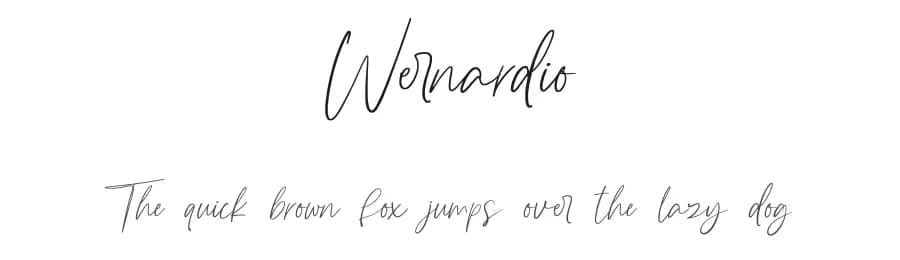 Wernardio
The quick brown fox jumps over the lazy dog